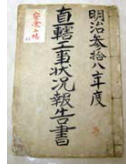 明治参拾八年度
直轄工事状况報告書